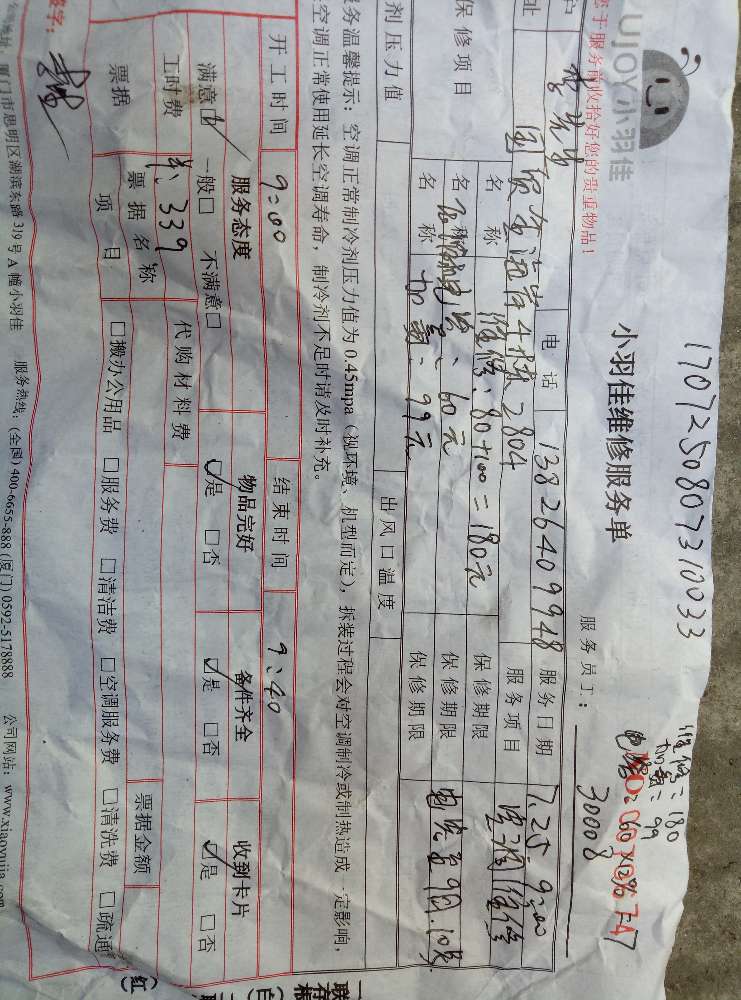 17072508073 10033
UJOY小羽佳
小羽佳维修服务单
服务员工：
30008
维修：180
加氟：99
您于服务前收拾好您的贵重物品！
户
李先生
电话
13826409948
服务日期
7.25. 9:00
址
2804
服务项目
空调维修
保修项目
名称
维修：80+100=180元
保修期限
名称
60元
保修期限
名称
加氟：99元
保修期限
剂压力值
出风口温度
务温馨提示：空调正常制冷剂压力值为0.45mpa（视环境、机型而定），拆装过程会对空调制冷或制热造成一定影响，
空调正常使用延长空调寿命，制冷剂不足时请及时补充。
开工时间
9:00
结束时间
9:40
服务态度
物品完好
备件齐全
收到卡片
满意□ 一般□ 不满意□
□是 □否
□是 □否
□是 □否
工时费
339
代购材料费
票据
票据名称
票据金额
项目
□搬办公用品 □服务费 □清洁费 □空调服务费 □清洗费 □疏通
签字：
地址：厦门市思明区湖滨东路319号A幢小羽佳 服务热线：(全国)400-6655-888 (厦门)0592-5178888 公司网站：www.xiaoyujia.com
一联
存根
(白)
(红)